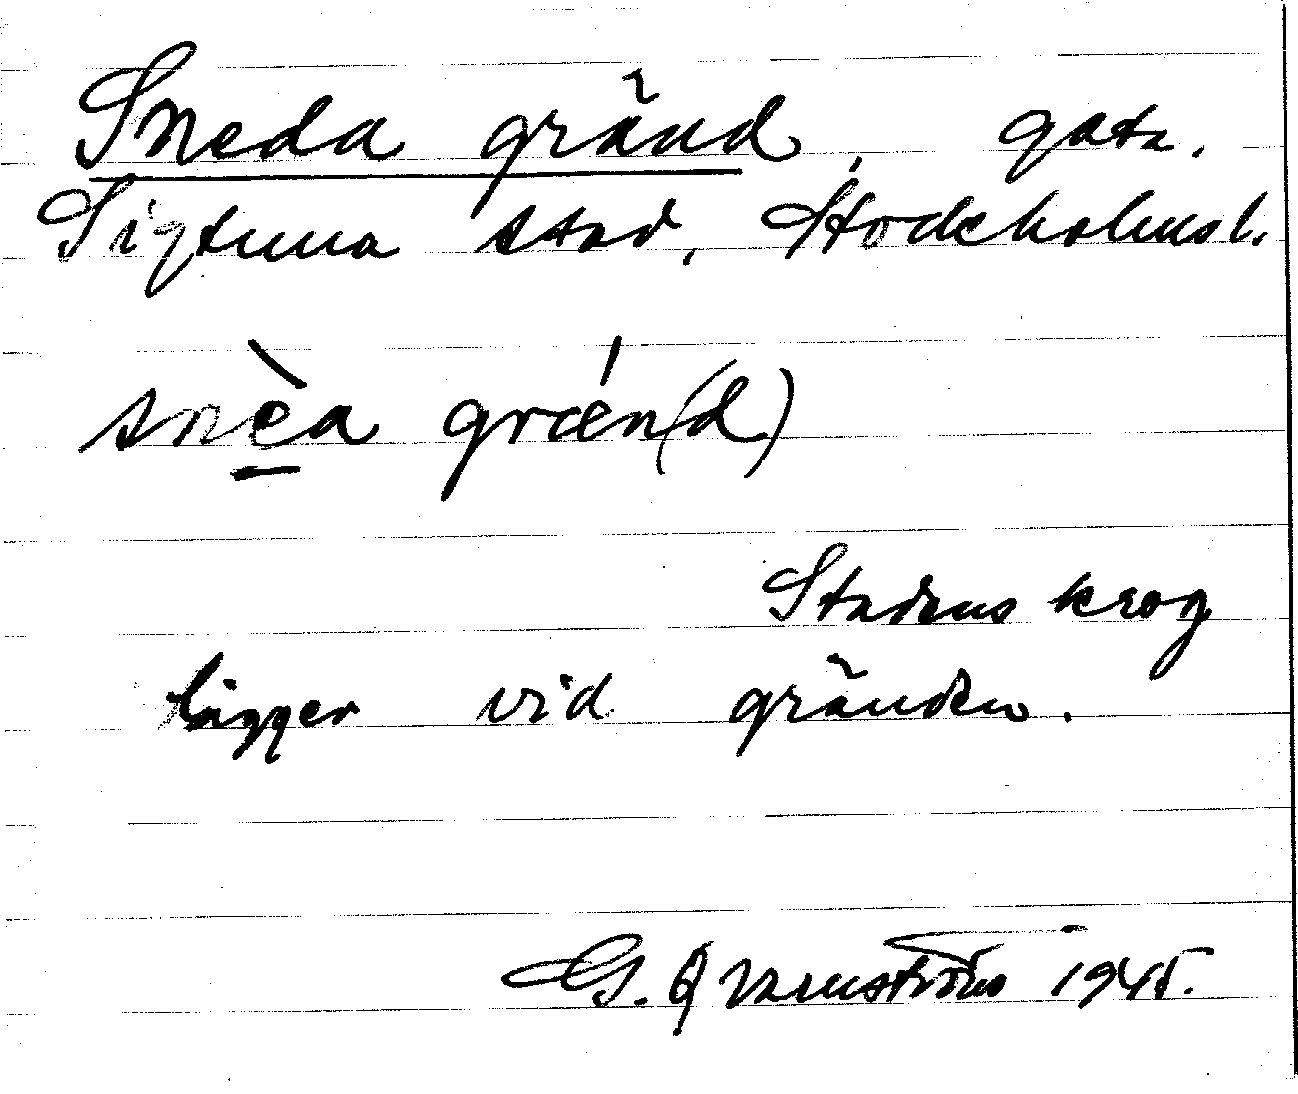 Sneda gränd, gata.
Sigtuna stad, Stockholmsl.
snèa grǽn(d)
Stadens krog
ligger vid gränden.
G. Qvarnström 1945.